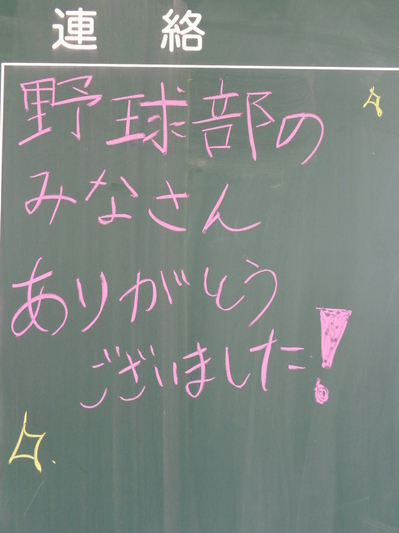 連絡
野球部の
みなさん
ありがとう
ございました!